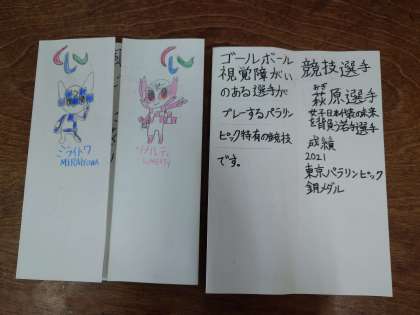 ミライトワ
MIRAITOWA
ソメイティ
SOMEITY
ゴールボール
視覚障がい
のある選手が
プレーするパラリン
ピック特有の競技
です。
競技選手
おぎ
萩原選手
女子日本代表の未来
を背負う若手選手
成績
2021
東京パラリンピック
銅メダル